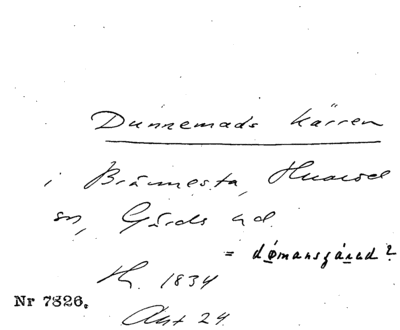 Dunnemads kärren
i Brännesta, Huaröd
sn, Gärds hd.
= dömansgärad?
H. 1834
Nr 7826.
Akt 24